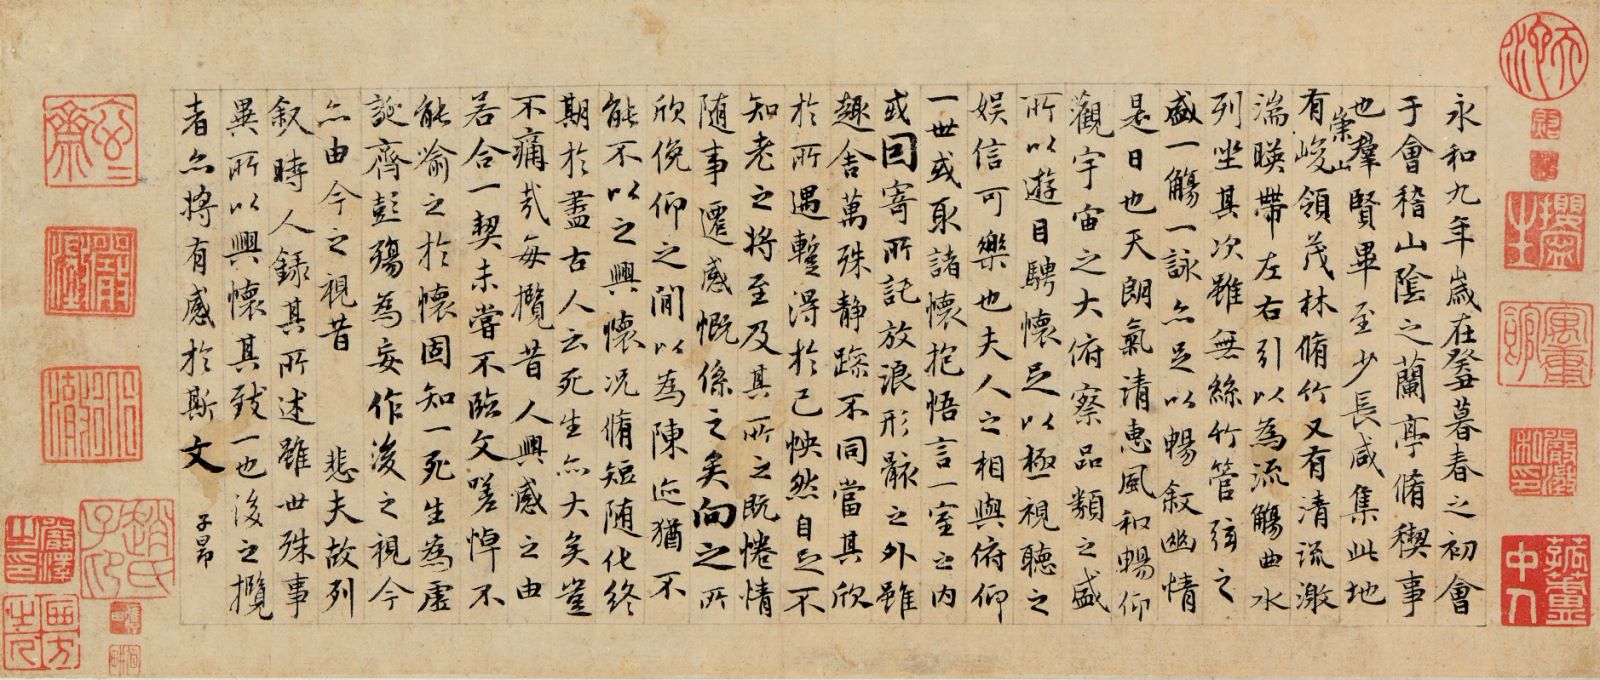 永和九年歲在癸丑暮春之初會
于會稽山陰之蘭亭脩稧事
也羣賢畢至少長咸集此地
有崇山峻領茂林脩竹又有清流激
湍暎帶左右引以為流觴曲水
列坐其次雖無絲竹管弦之
盛一觴一詠亦足以暢叙幽情
是日也天朗氣清惠風和暢仰
觀宇宙之大俯察品類之盛
所以遊目騁懷足以極視聽之
娛信可樂也夫人之相與俯仰
一世或取諸懷抱悟言一室之内
或因寄所託放浪形骸之外雖
趣舍萬殊静躁不同當其欣
於所遇蹔得於己怏然自足不
知老之將至及其所之既惓情
随事遷感慨係之矣向之所
欣俛仰之閒以為陳迹猶不
能不以之興懷况脩短随化終
期於盡古人云死生亦大矣豈
不痛哉每攬昔人興感之由
若合一契未嘗不臨文嗟悼不
能喻之於懷固知一死生為虛
誕齊彭殤為妄作後之視今
亦由今之視昔 悲夫故列
叙時人錄其所述雖世殊事
異所以興懷其致一也後之攬
者亦將有感於斯文
子昂
趙氏子昂